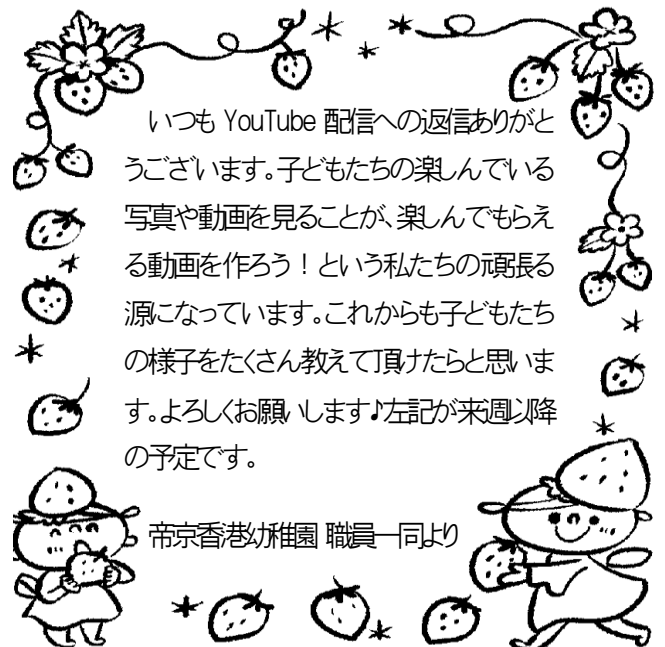 いつも YouTube 配信への返信ありがと
うございます。子どもたちの楽しんでいる
写真や動画を見ることが、楽しんでもらえ
る動画を作ろう！という私たちの頑張る
源になっています。これからも子どもたち
の様子をたくさん教えて頂けたらと思いま
す。よろしくお願いします♪左記が来週以降
の予定です。
帝京香港幼稚園 職員一同より